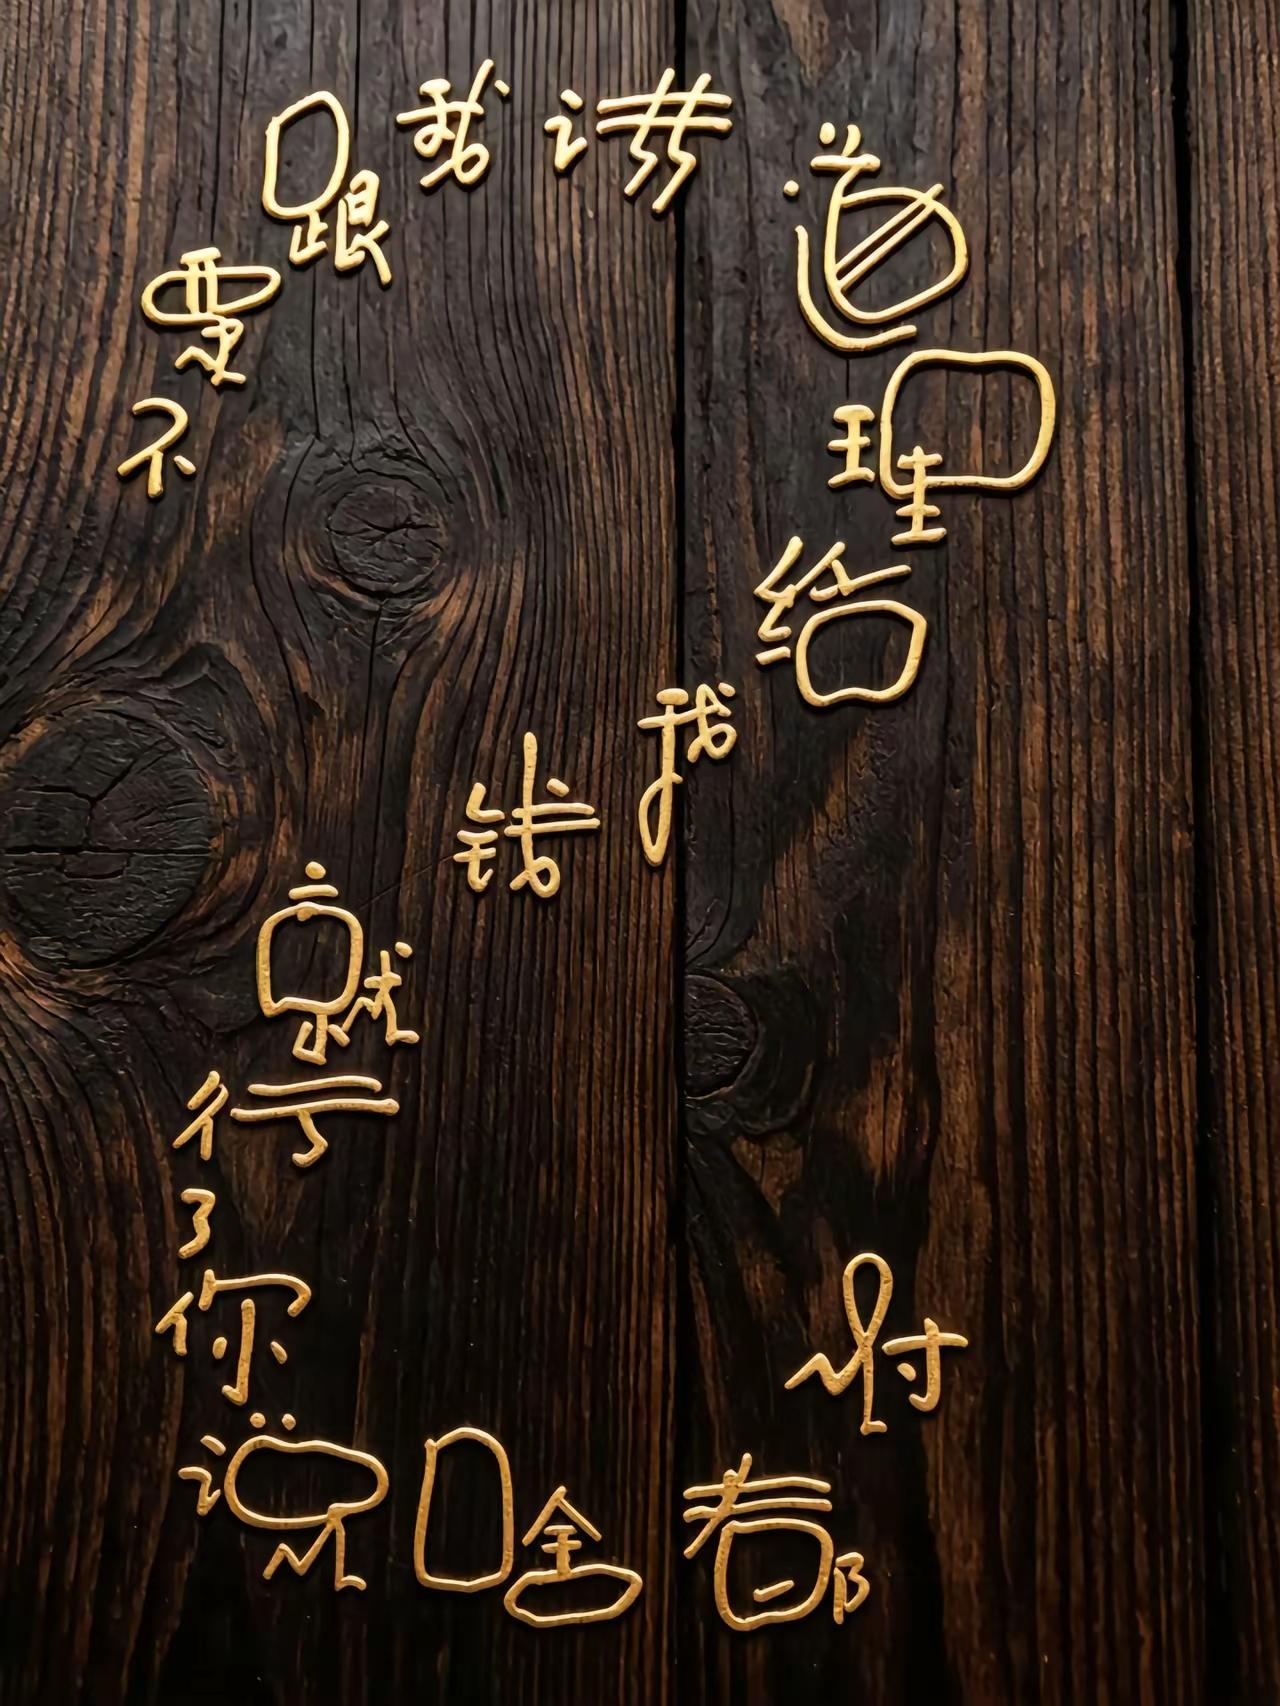 不要跟我讲道理给我钱就行了你说啥都对